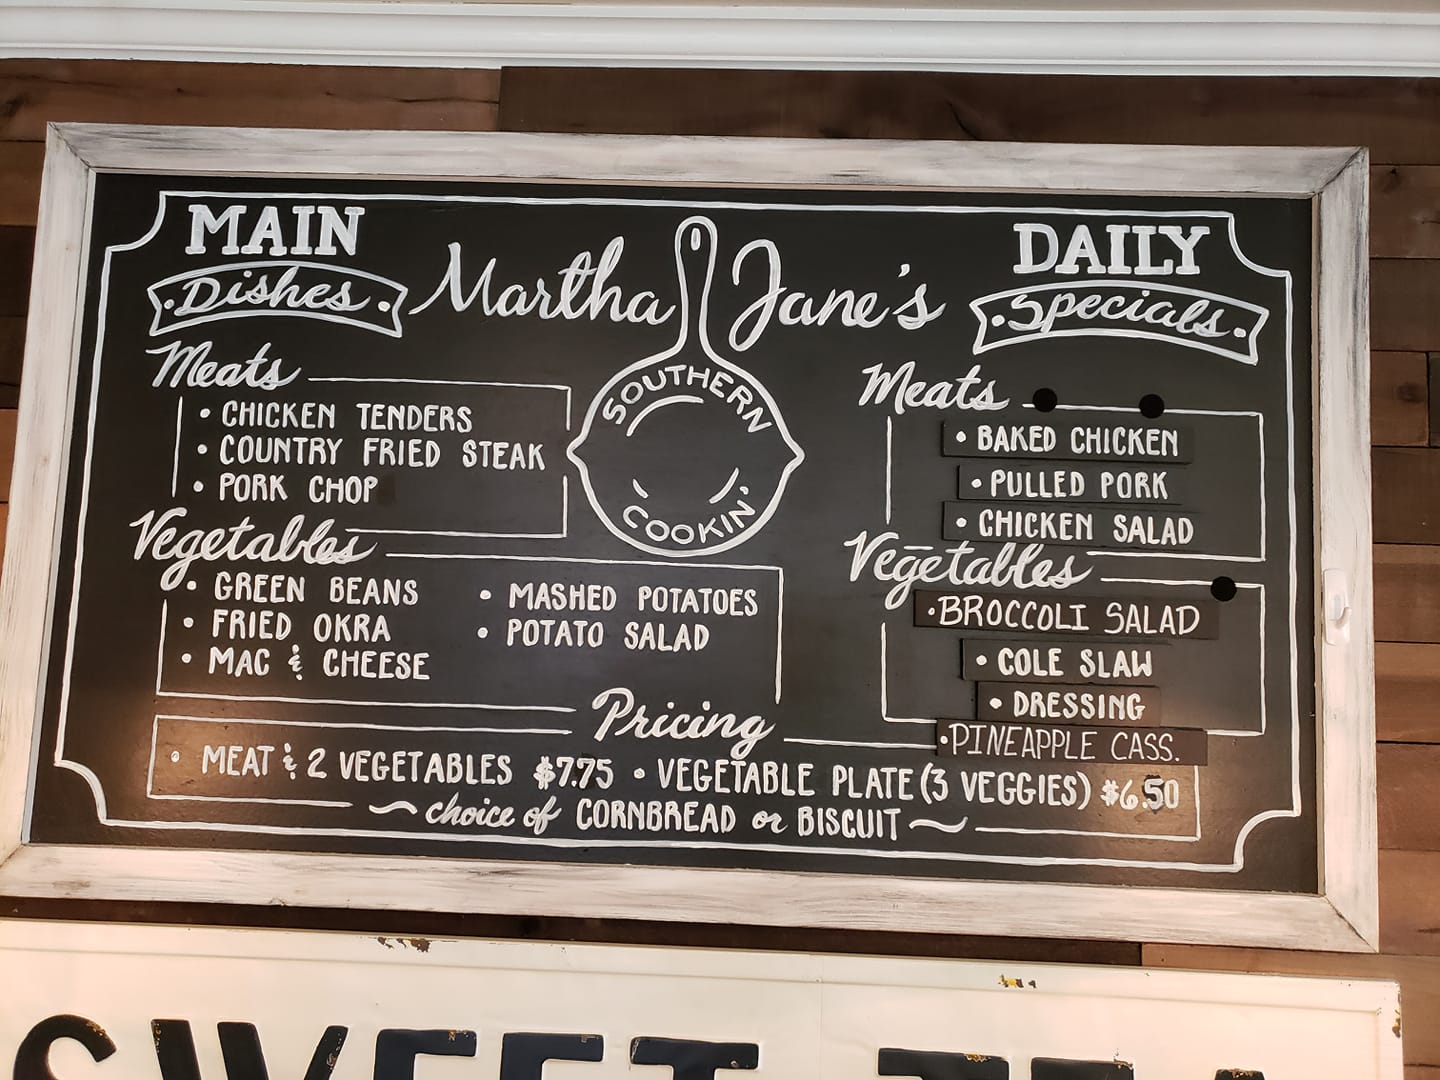 MAIN
Dishes
Martha Jane's
SOUTHERN
COOKIN'
Meats
• CHICKEN TENDERS
• COUNTRY FRIED STEAK
• PORK CHOP
Vegetables
• GREEN BEANS
• FRIED OKRA
• MAC & CHEESE
• MASHED POTATOES
• POTATO SALAD
DAILY
Specials
Meats
• BAKED CHICKEN
• PULLED PORK
• CHICKEN SALAD
Vegetables
• BROCCOLI SALAD
• COLE SLAW
• DRESSING
• PINEAPPLE CASS.
Pricing
• MEAT & 2 VEGETABLES $7.75 • VEGETABLE PLATE (3 VEGGIES) $6.50
choice of CORNBREAD or BISCUIT
SWEET TEA